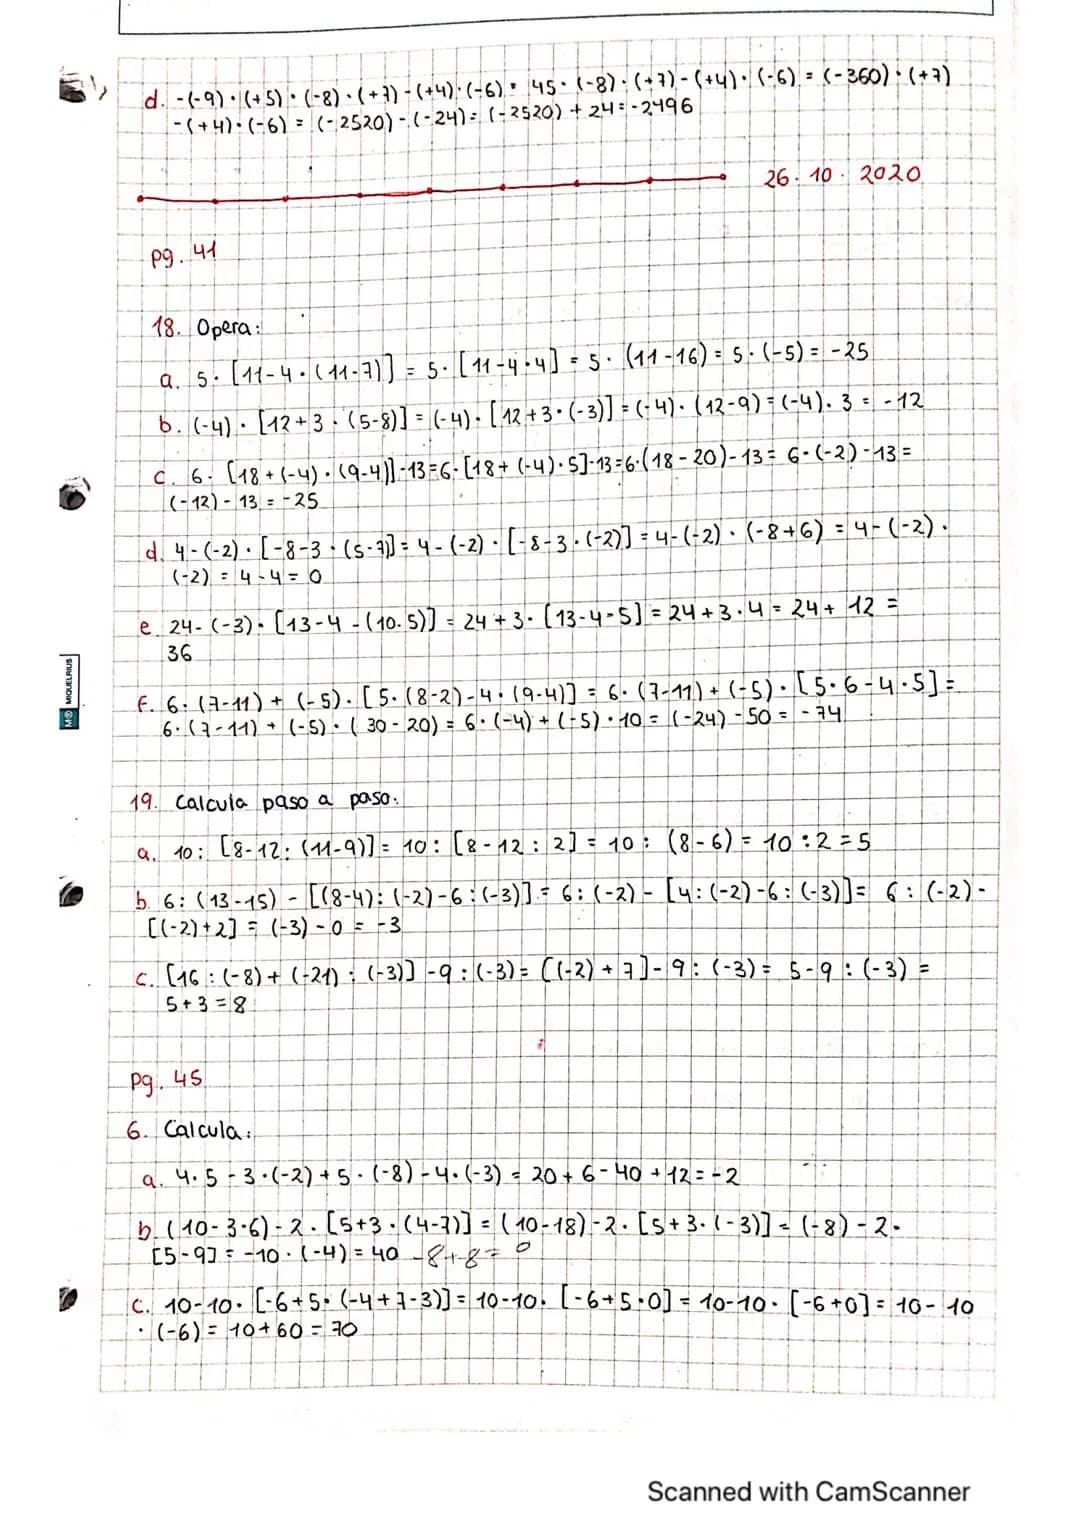 d. -(-9)·(+5)·(-8)·(+7)-(+4)·(-6)= 45·(-8)·(+7)-(+4)·(-6)=(-360)·(+7)
-(+4)·(-6) = (-2520)-(-24)= (-2520)+24=-2496
26. 10. 2020
pg. 41
18. Opera:
a. 5·[11-4·(11-7)] = 5·[11-4·4] = 5·(11-16) = 5·(-5) = -25
b. (-4)·[12+3·(5-8)] = (-4)·[12+3·(-3)] = (-4)·(12-9) = (-4)·3 = -12
c. 6·[18+(-4)·(9-4)]-13=6·[18+(-4)·5]-13=6·(18-20)-13= 6·(-2)-13=
(-12)-13 = -25
d. 4-(-2)·[-8-3·(5-7)]= 4-(-2)·[-8-3·(-2)] = 4-(-2)·(-8+6) = 4-(-2)·
(-2) = 4-4 = 0
e. 24-(-3)·[13-4-(10-5)] = 24+3·[13-4-5] = 24+3·4 = 24+ 12 =
36
f. 6·(7-11)+(-5)·[5·(8-2)-4·(9-4)] = 6·(7-11)+(-5)·[5·6-4·5]=
6·(7-11)+(-5)·(30-20) = 6·(-4)+(-5)·10 = (-24)-50 = -74
M® MIQUELRIUS
19. Calcula paso a paso:
a. 10: [8-12:(11-9)]= 10: [8-12:2] = 10: (8-6) = 10:2=5
b. 6:(13-15) - [(8-4):(-2)-6:(-3)] = 6:(-2) - [4:(-2)-6:(-3)]= 6:(-2)-
[(-2)+2] = (-3)-0 = -3
c. [16:(-8)+(-21):(-3)]-9:(-3)= [(-2)+7]-9:(-3)= 5-9:(-3) =
5+3=8
pg. 45
6. Calcula:
a. 4·5-3·(-2)+5·(-8)-4·(-3) = 20+6-40+12=-2
b. (10-3·6)-2·[5+3·(4-7)] = (10-18)-2·[5+3·(-3)] = (-8)-2·
[5-9] = -10·(-4)=40 -8+8= 0
c. 10-10·[-6+5·(-4+7-3)]= 10-10·[-6+5·0] = 10-10·[-6+0] = 10-10
·(-6)= 10+60=70
Scanned with CamScanner